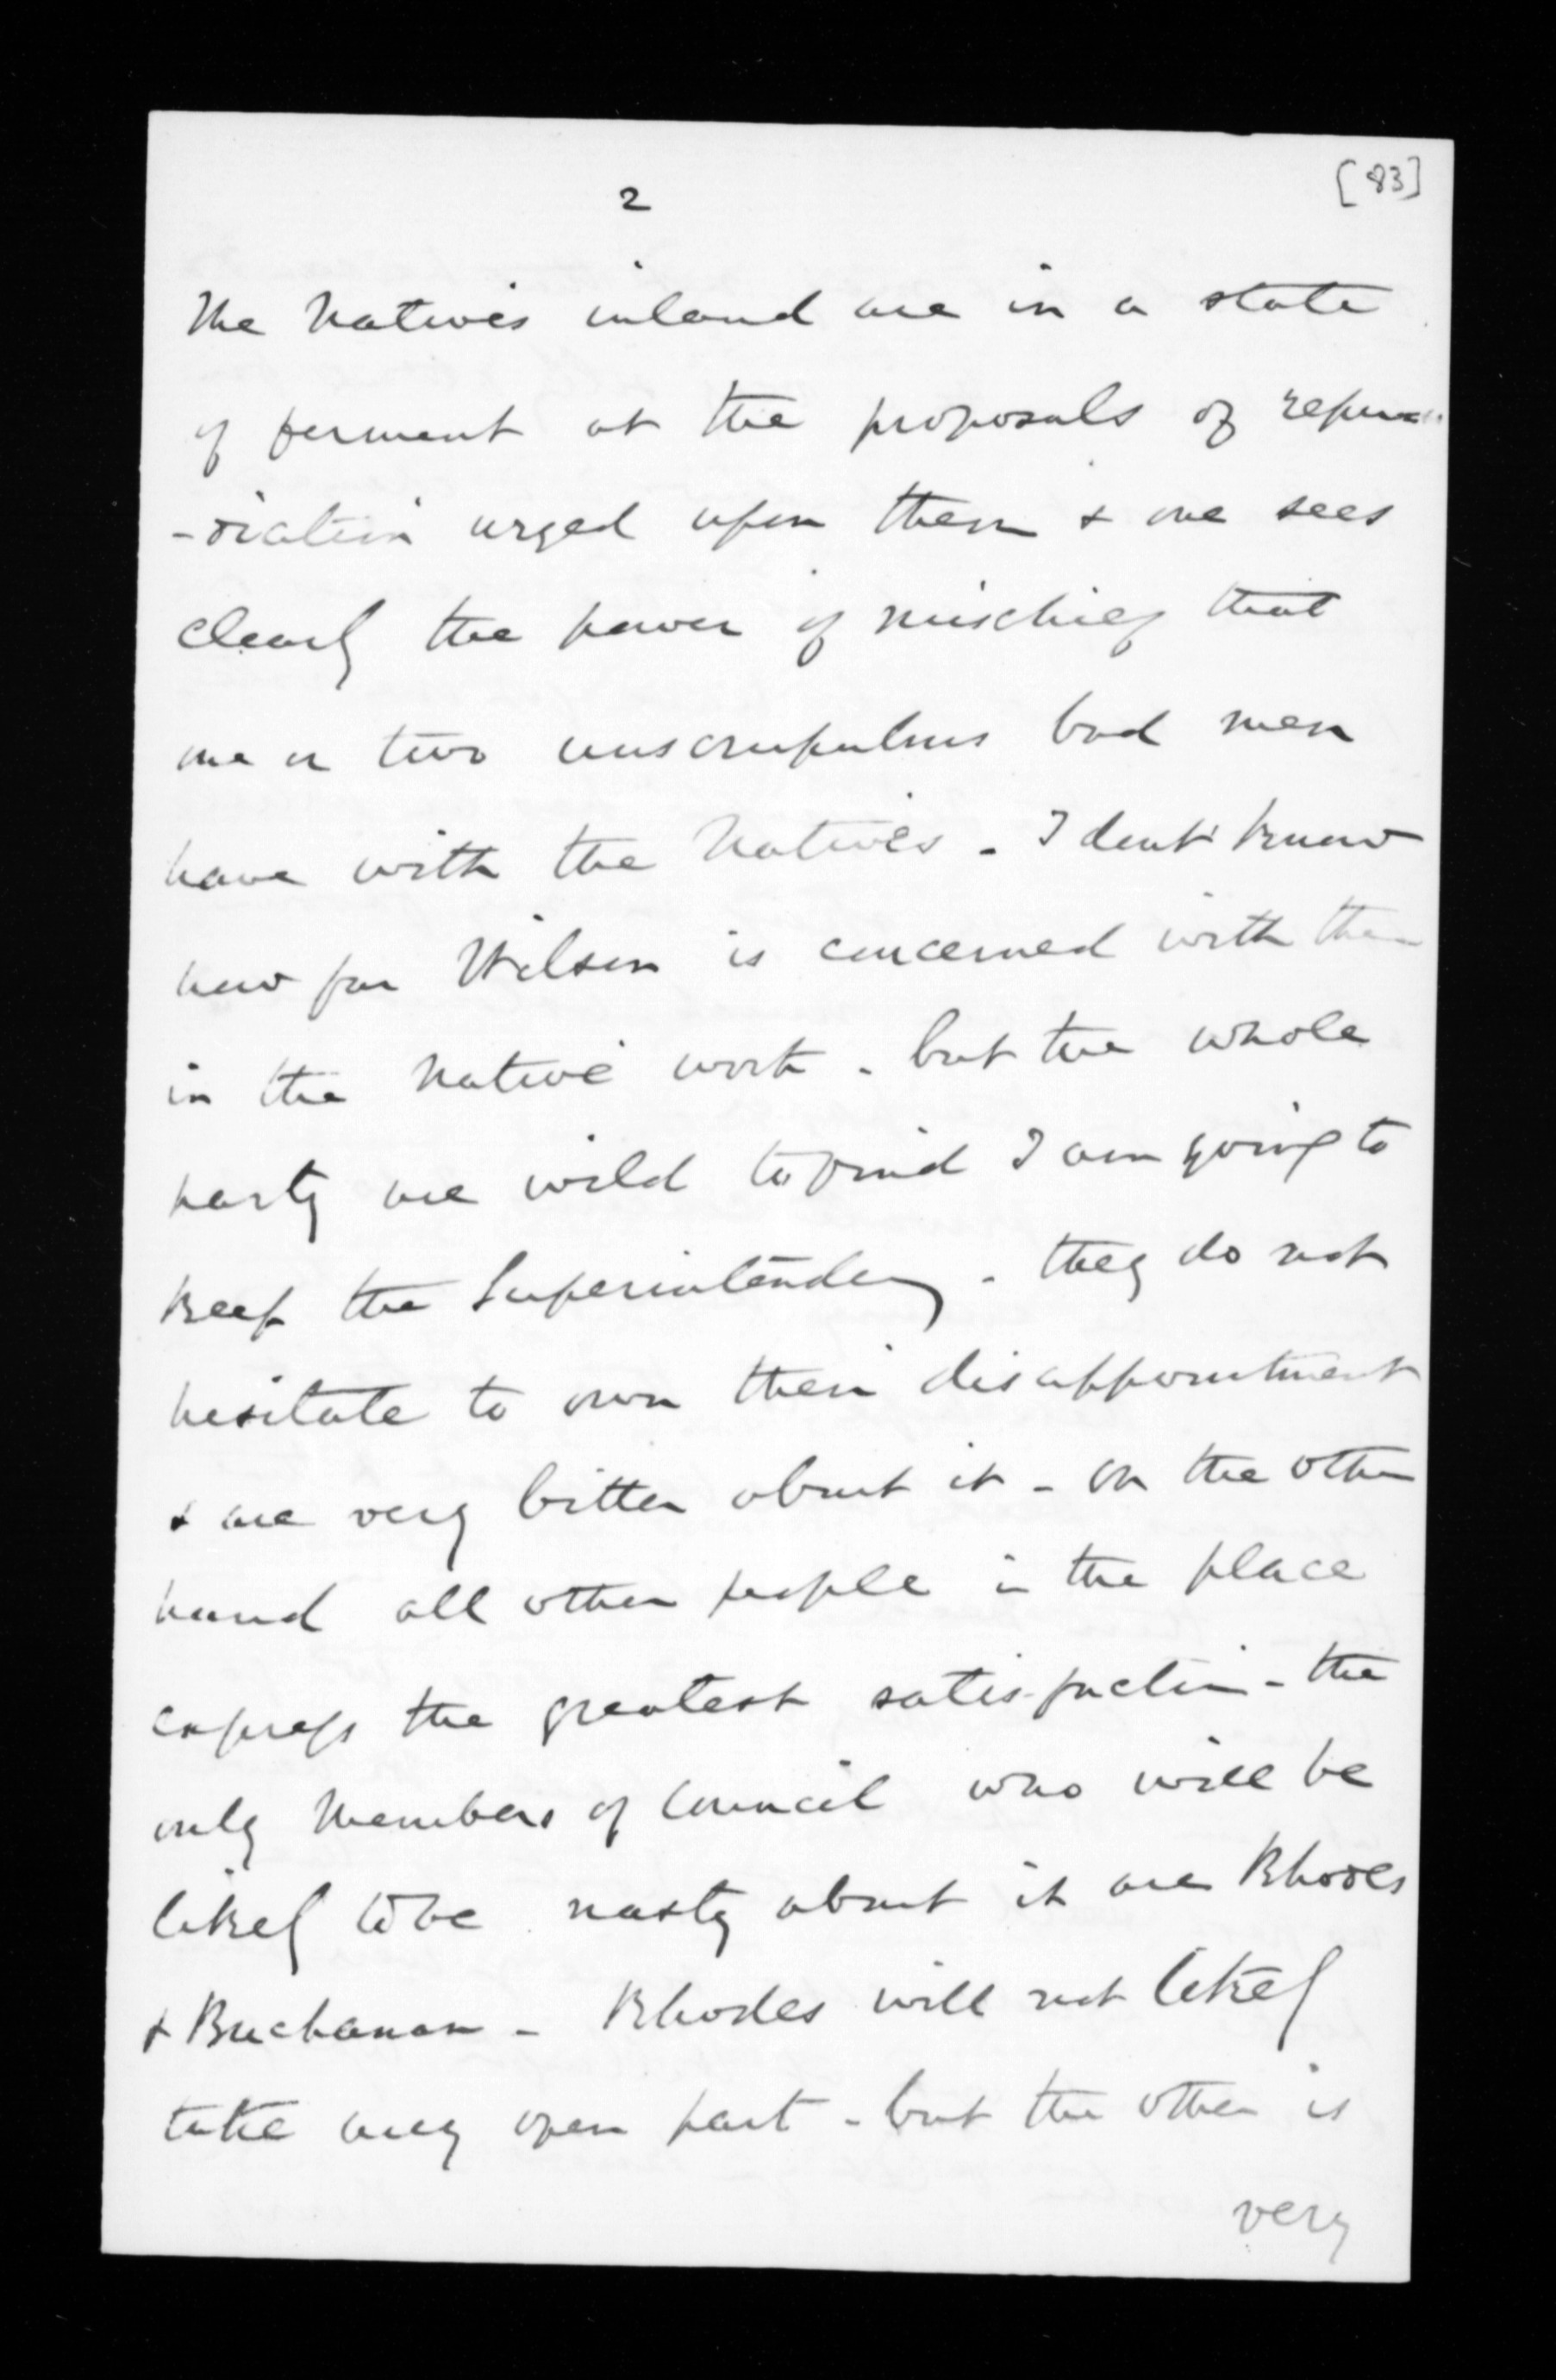 [83]
2
The Natives inland are in a state
of ferment at the proposals of repu
-diation urged upon them & one sees
clearly the power of mischief that
one or two unscrupulous bad men
have with the Natives - I dont know
how far Wilson is concerned with them
in the Native work - but the whole
party are wild to find I am going to
keep the Superintendency - they do not
hesitate to own their disappointment
& are very bitter about it - on the other
hand all other people in the place
express the greatest satisfaction - the
only Members of Council who will be
likely to be nasty about it are Rhodes
& Buchanan - Rhodes will not likely
take any open part - but the other is
very